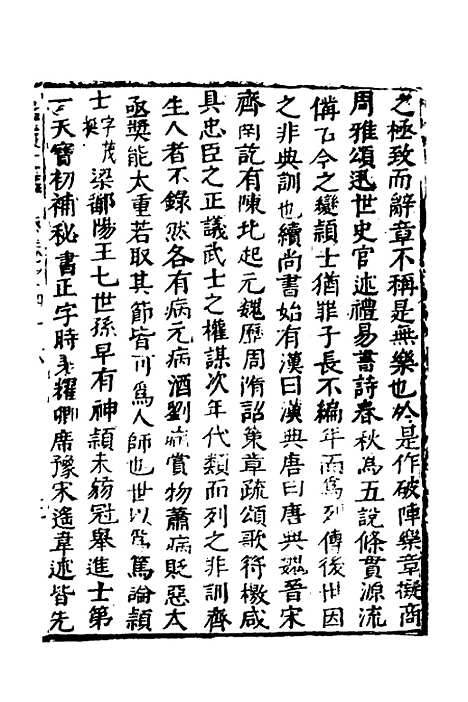 之極致而辭章不稱是無樂也於是作破陣樂章擬商
周雅頌迅世史官述禮易書詩春秋爲五說條貫源流
俻古今之變頴士猶罪子長不編年而爲列傳後世因
之非典訓也續尚書始有漢曰漢典唐曰唐典魏晉宋
齊因訖有陳北起元魏歷周隋詔策章疏頌歌符檄咸
具忠臣之正議武士之權謀次年代類而列之非訓齊
生人者不錄然各有病元病酒劉病賞物蕭病貶惡太
亟奬能太重若取其節皆可爲人師也世以爲篤論頴
士字茂挺梁鄱陽王七世孫早有神頴未弱冠舉進士第
一天寶初補秘書正字時裴耀卿席豫宋遙韋述皆先